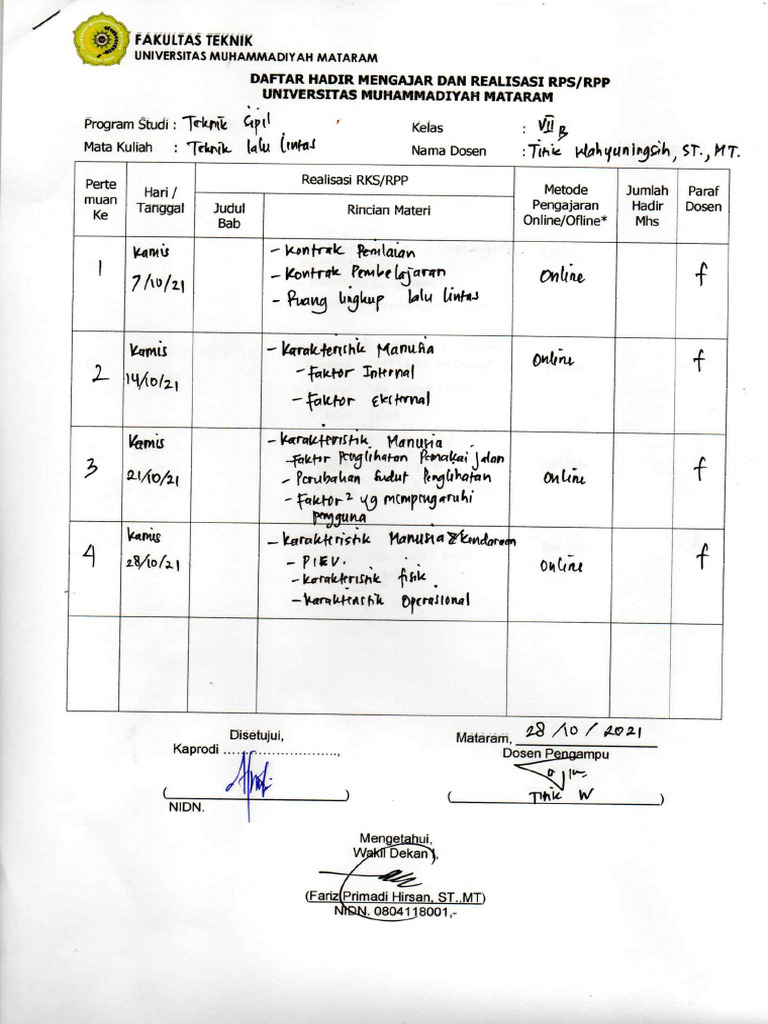 FAKULTAS TEKNIK
UNIVERSITAS MUHAMMADIYAH MATARAM
DAFTAR HADIR MENGAJAR DAN REALISASI RPS/RPP
UNIVERSITAS MUHAMMADIYAH MATARAM
Program Studi : Teknik Sipil
Kelas : VII B
Mata Kuliah : Teknik lalu lintas
Nama Dosen : Titik Wahyuningsih, ST., MT.
Perte muan Ke
Hari / Tanggal
Realisasi RKS/RPP
Judul Bab
Rincian Materi
Metode Pengajaran Online/Ofline*
Jumlah Hadir Mhs
Paraf Dosen
1
Kamis
7/10/21
- Kontrak Penilaian
- Kontrak Pembelajaran
- Ruang lingkup lalu lintas
Online
2
Kamis
14/10/21
- Karakteristik Manusia
- Faktor Internal
- Faktor Eksternal
Online
3
Kamis
21/10/21
- Karakteristik Manusia
- Faktor Penglihatan Pemakai jalan
- Perubahan Sudut Penglihatan
- Faktor² yg mempengaruhi
pengguna
Online
4
Kamis
28/10/21
- Karakteristik Manusia & Kendaraan
- PIEV.
- Karakteristik fisik
- Karakteristik Operasional
Online
Disetujui,
Kaprodi ........................,
(                    )
NIDN.
Mataram, 28/10/2021
Dosen Pengampu
( Titik W )
Mengetahui,
Wakil Dekan I,
(Fariz Primadi Hirsan, ST.,MT)
NIDN. 0804118001,-